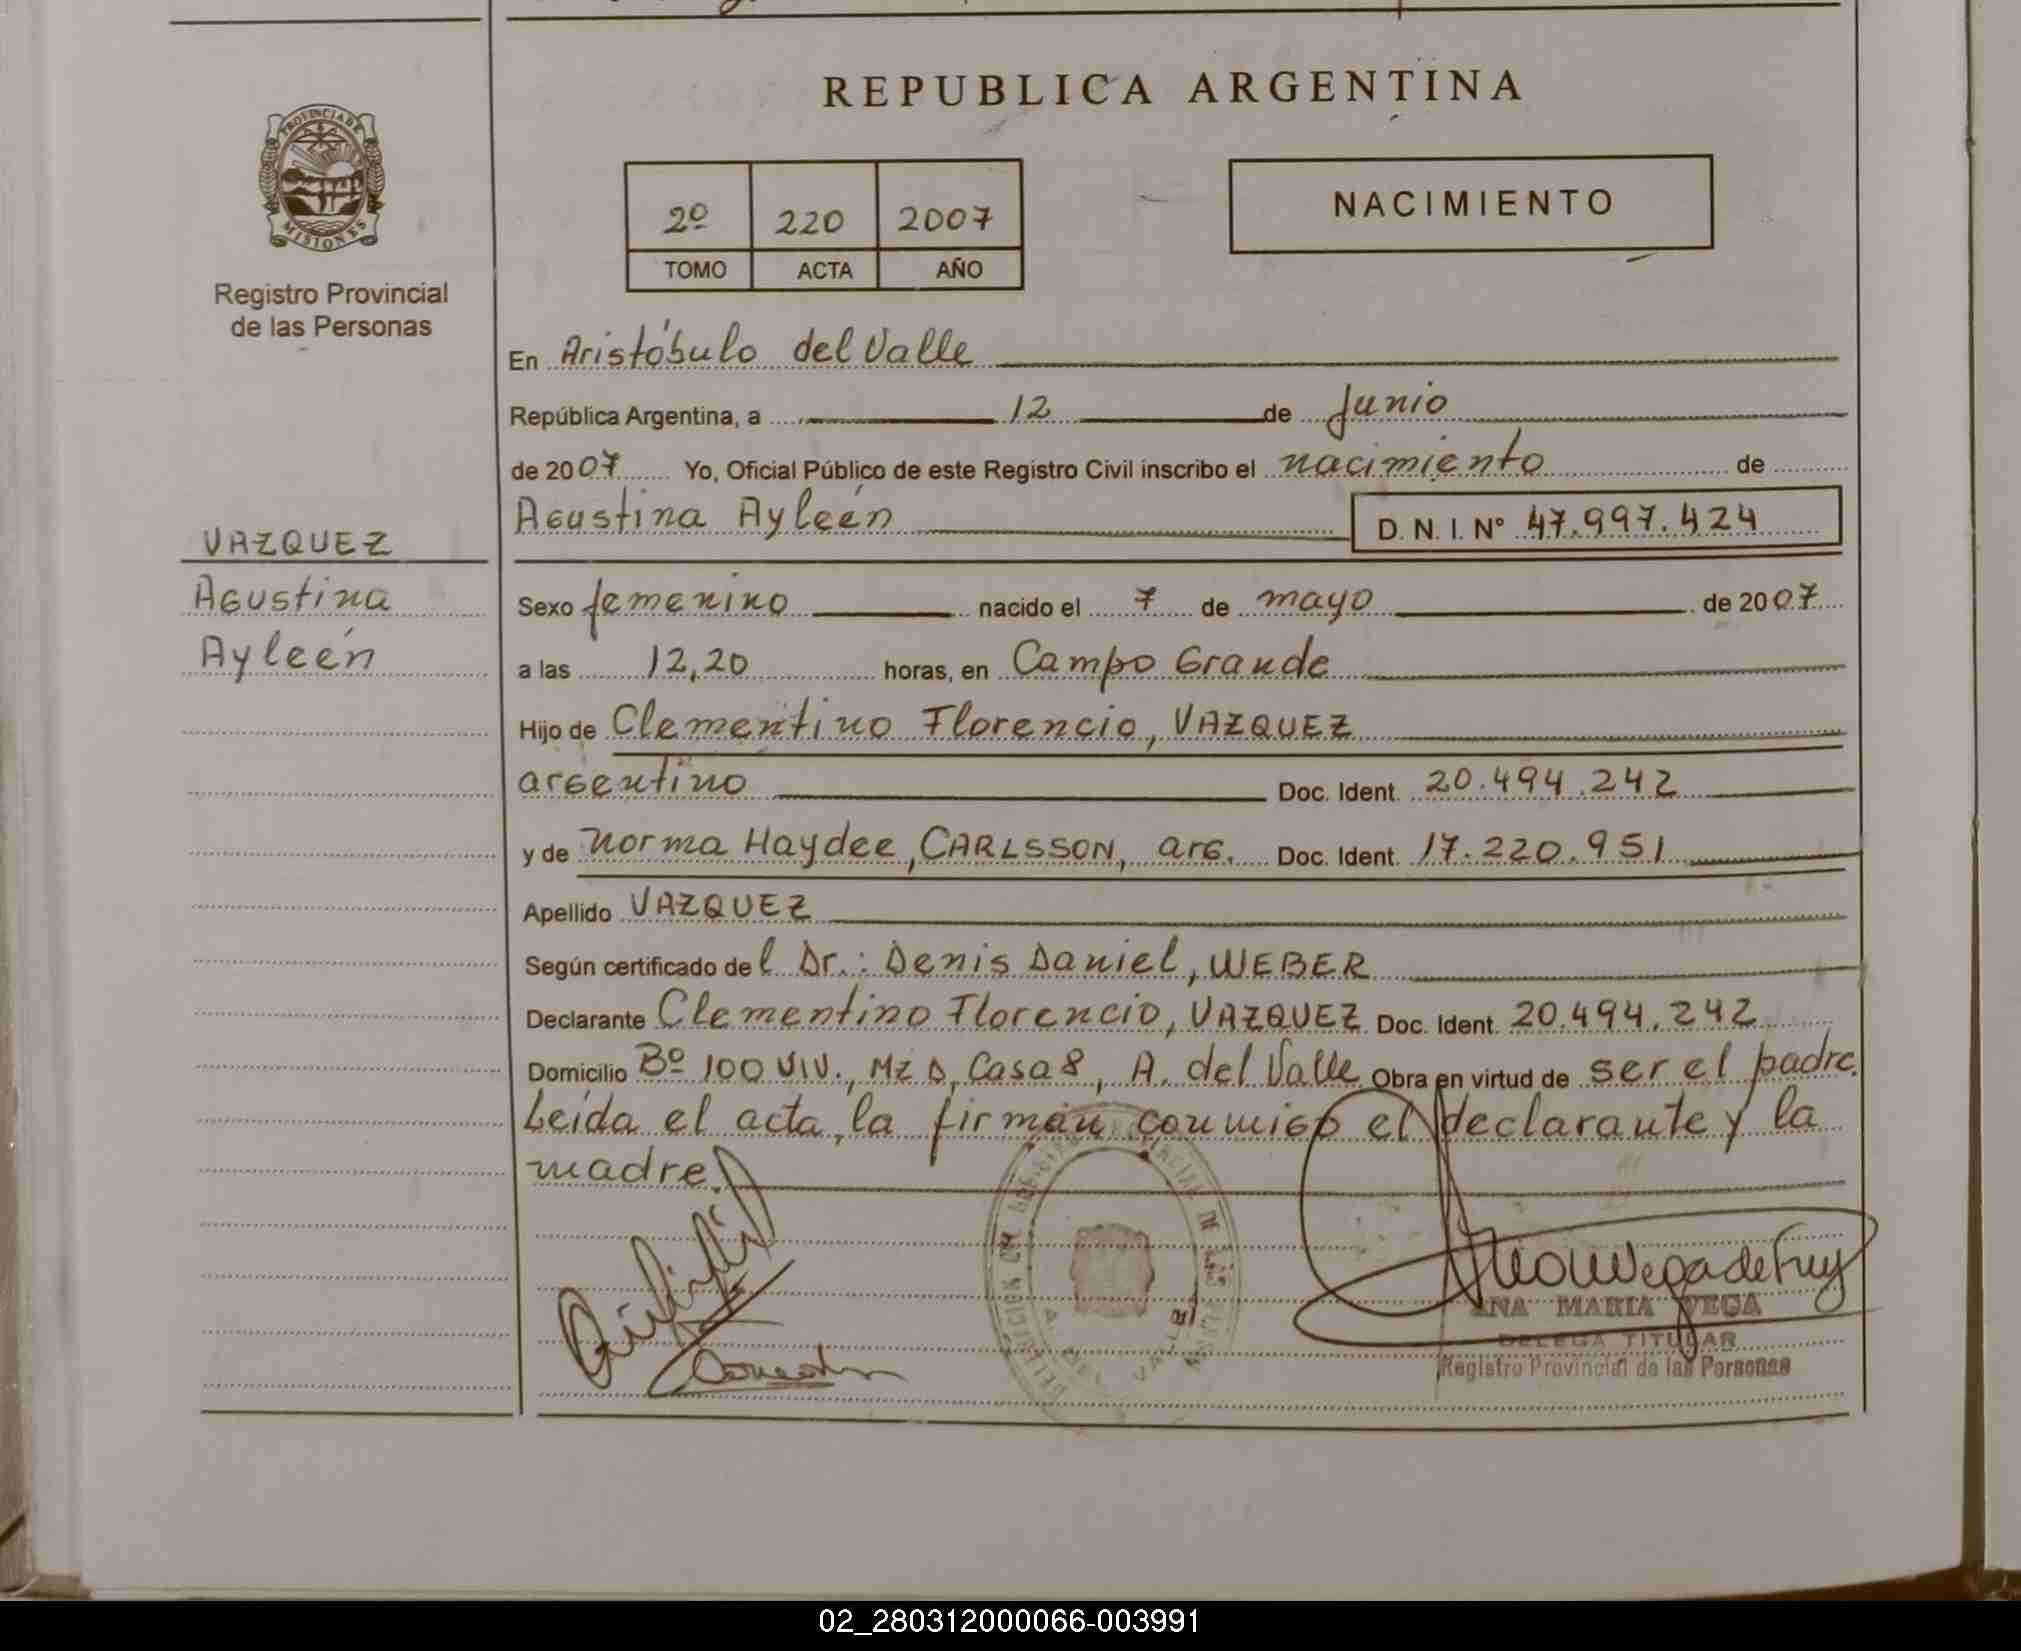 REPUBLICA ARGENTINA
PROVINCIA DE
MISIONES
Registro Provincial
de las Personas
2º 220 2007
TOMO ACTA AÑO
NACIMIENTO
En Aristóbulo del Valle
República Argentina, a 12 de Junio
de 2007 Yo, Oficial Público de este Registro Civil inscribo el nacimiento de
Agustina Ayleén D. N. I. Nº 47.997.424
VAZQUEZ
Agustina
Ayleén
Sexo femenino nacido el 7 de mayo de 2007
a las 12,20 horas, en Campo Grande
Hijo de Clementino Florencio, VAZQUEZ
argentino Doc. Ident. 20.494.242
y de Norma Haydee, CARLSSON, arg. Doc. Ident. 17.220.951
Apellido VAZQUEZ
Según certificado del Dr.: Denis Daniel, WEBER
Declarante Clementino Florencio, VAZQUEZ Doc. Ident. 20.494.242
Domicilio Bº 100 VIV., Mz D, Casa 8, A. del Valle Obra en virtud de ser el padre.
Leída el acta, la firman conmigo el declarante y la
madre.
ANA MARIA VEGA
DELEGA TITULAR
Registro Provincial de las Personas
02_280312000066-003991